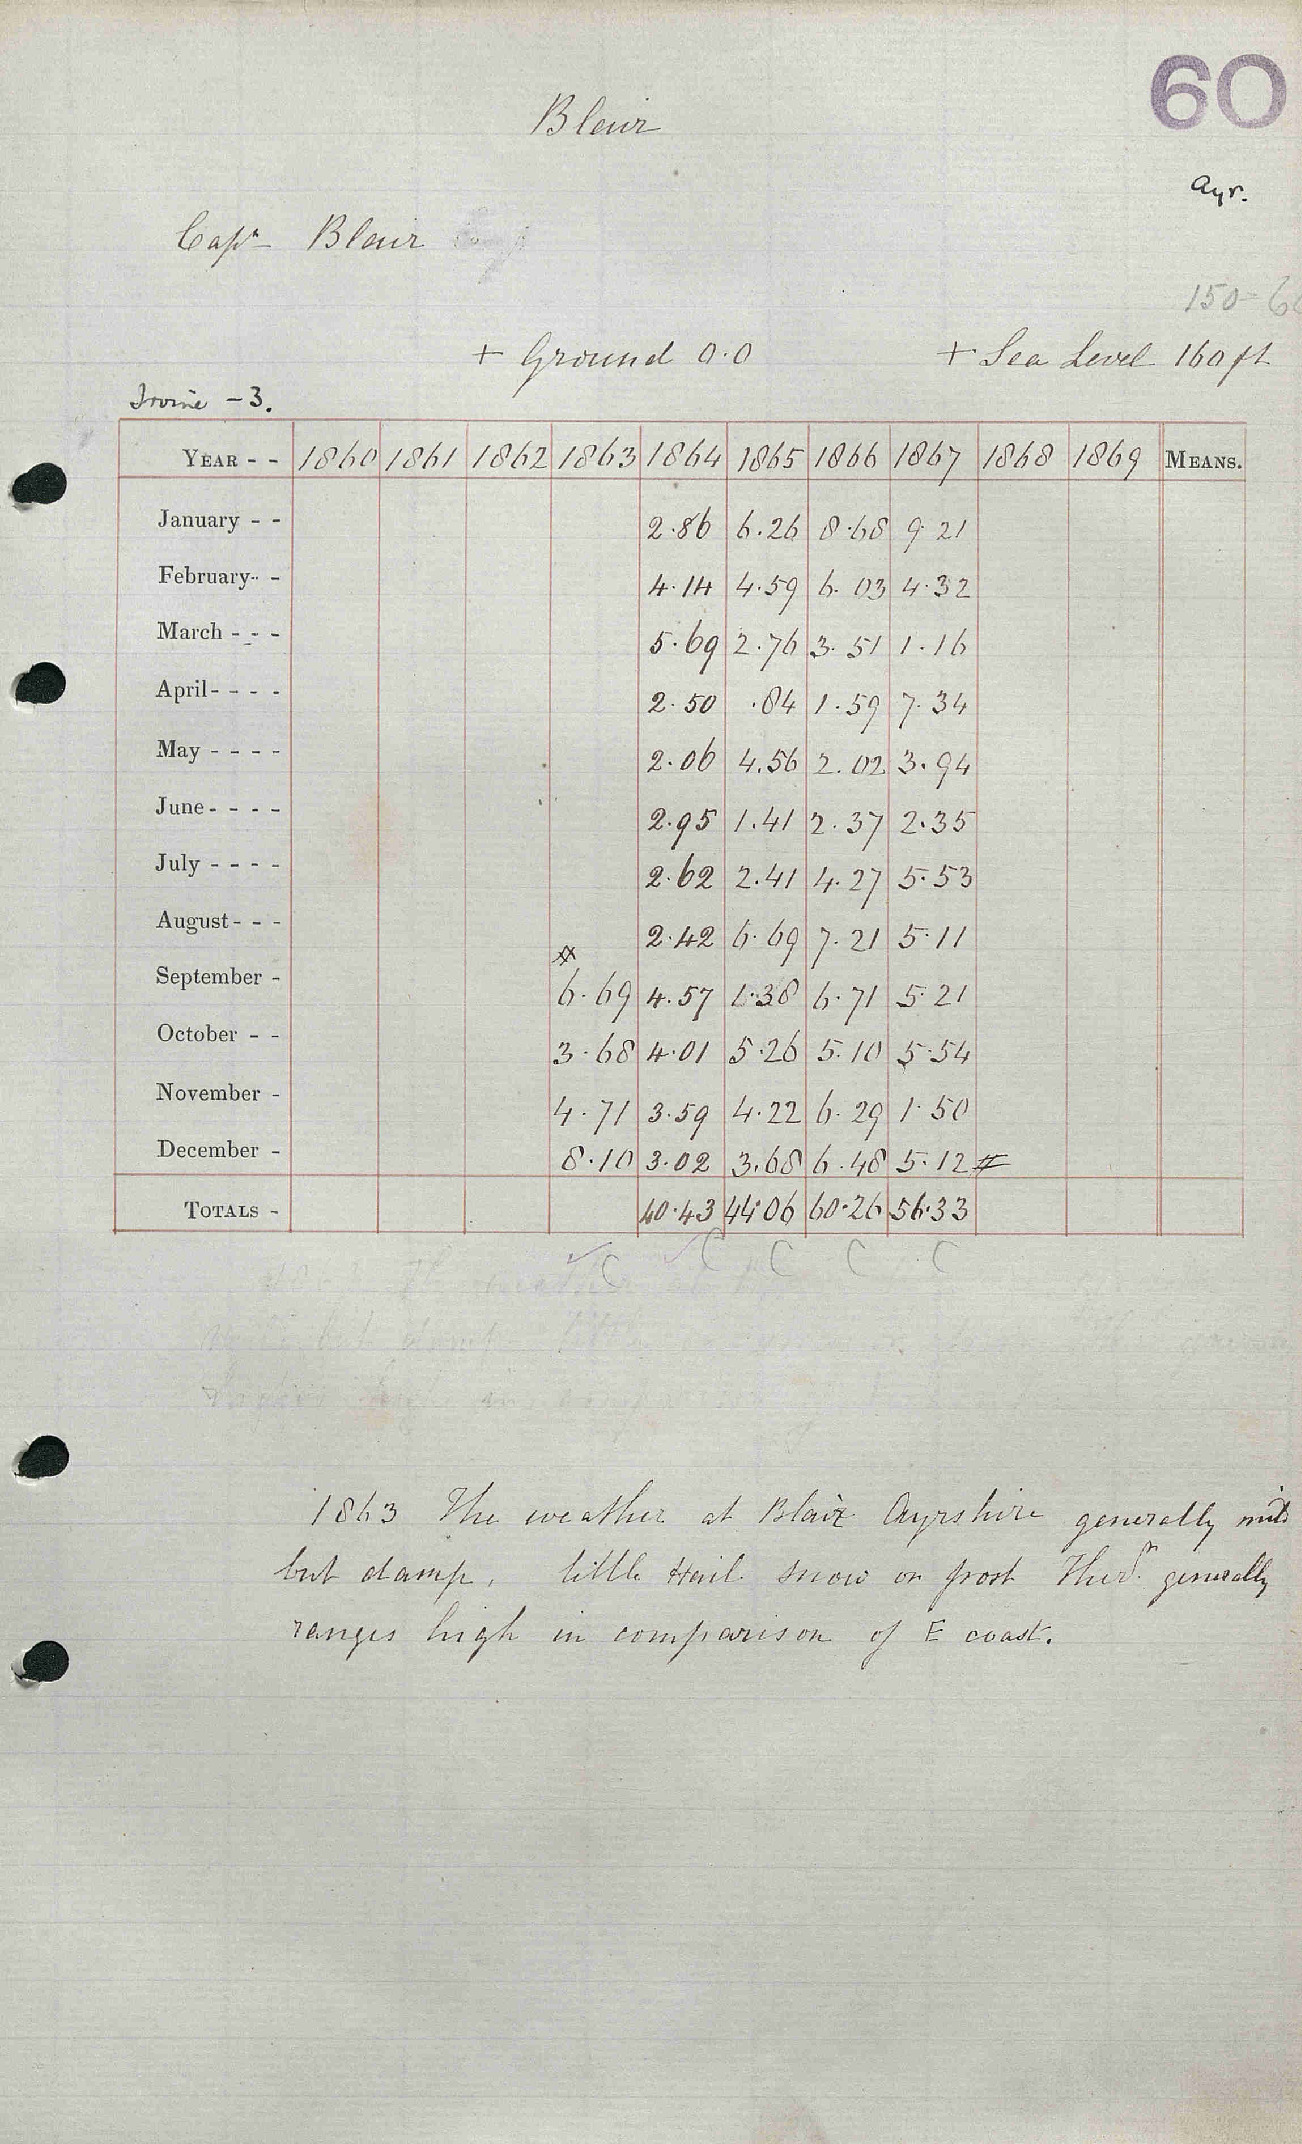 60
Blair
Ayr.
Capt Blair
150-
+ Ground 0.0 + Sea Level 160 ft
Irvine - 3.
YEAR - - 1860 1861 1862 1863 1864 1865 1866 1867 1868 1869 MEANS.
January - - 2.86 6.26 8.68 9.21
February - - 4.14 4.59 6.03 4.32
March - - - 5.69 2.76 3.51 1.16
April - - - - 2.50 .84 1.59 7.34
May - - - - 2.06 4.56 2.02 3.94
June - - - - 2.95 1.41 2.37 2.35
July - - - - 2.62 2.41 4.27 5.53
August - - - 2.42 6.69 7.21 5.11
September - 6.69 4.57 1.38 6.71 5.21
October - - 3.68 4.01 5.26 5.10 5.54
November - 4.71 3.59 4.22 6.29 1.50
December - 8.10 3.02 3.68 6.48 5.12 #
TOTALS - 40.43 44.06 60.26 56.33
C C C C C
1863 The weather at Blair Ayrshire generally mild
but damp, little Hail snow or frost Therr. generally
ranges high in comparison of E coast.